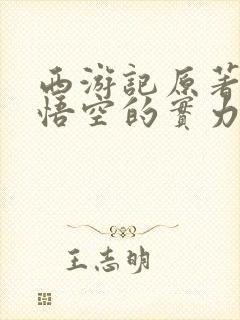 西游記原著
悟空的實力
王志明